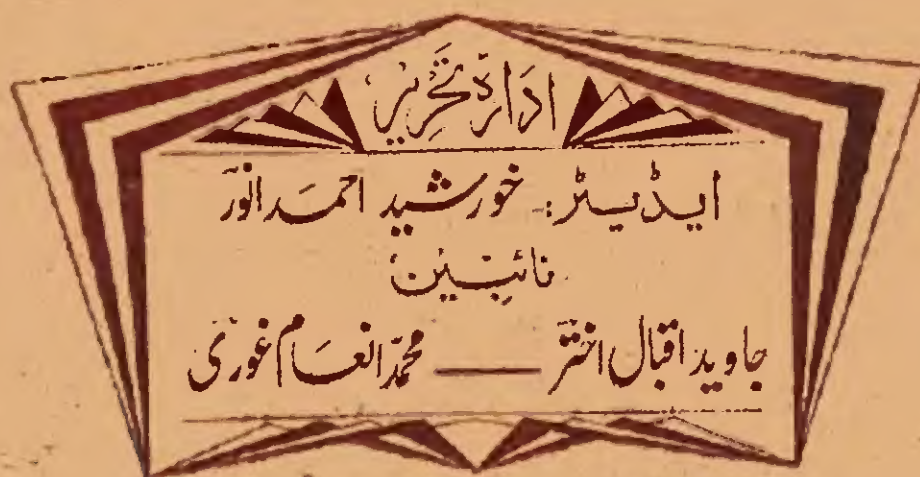 ادارۂ تحریر
ایڈیٹر:- خورشید احمد انور
نائبین
جاوید اقبال اختر — محمد انعام غوری